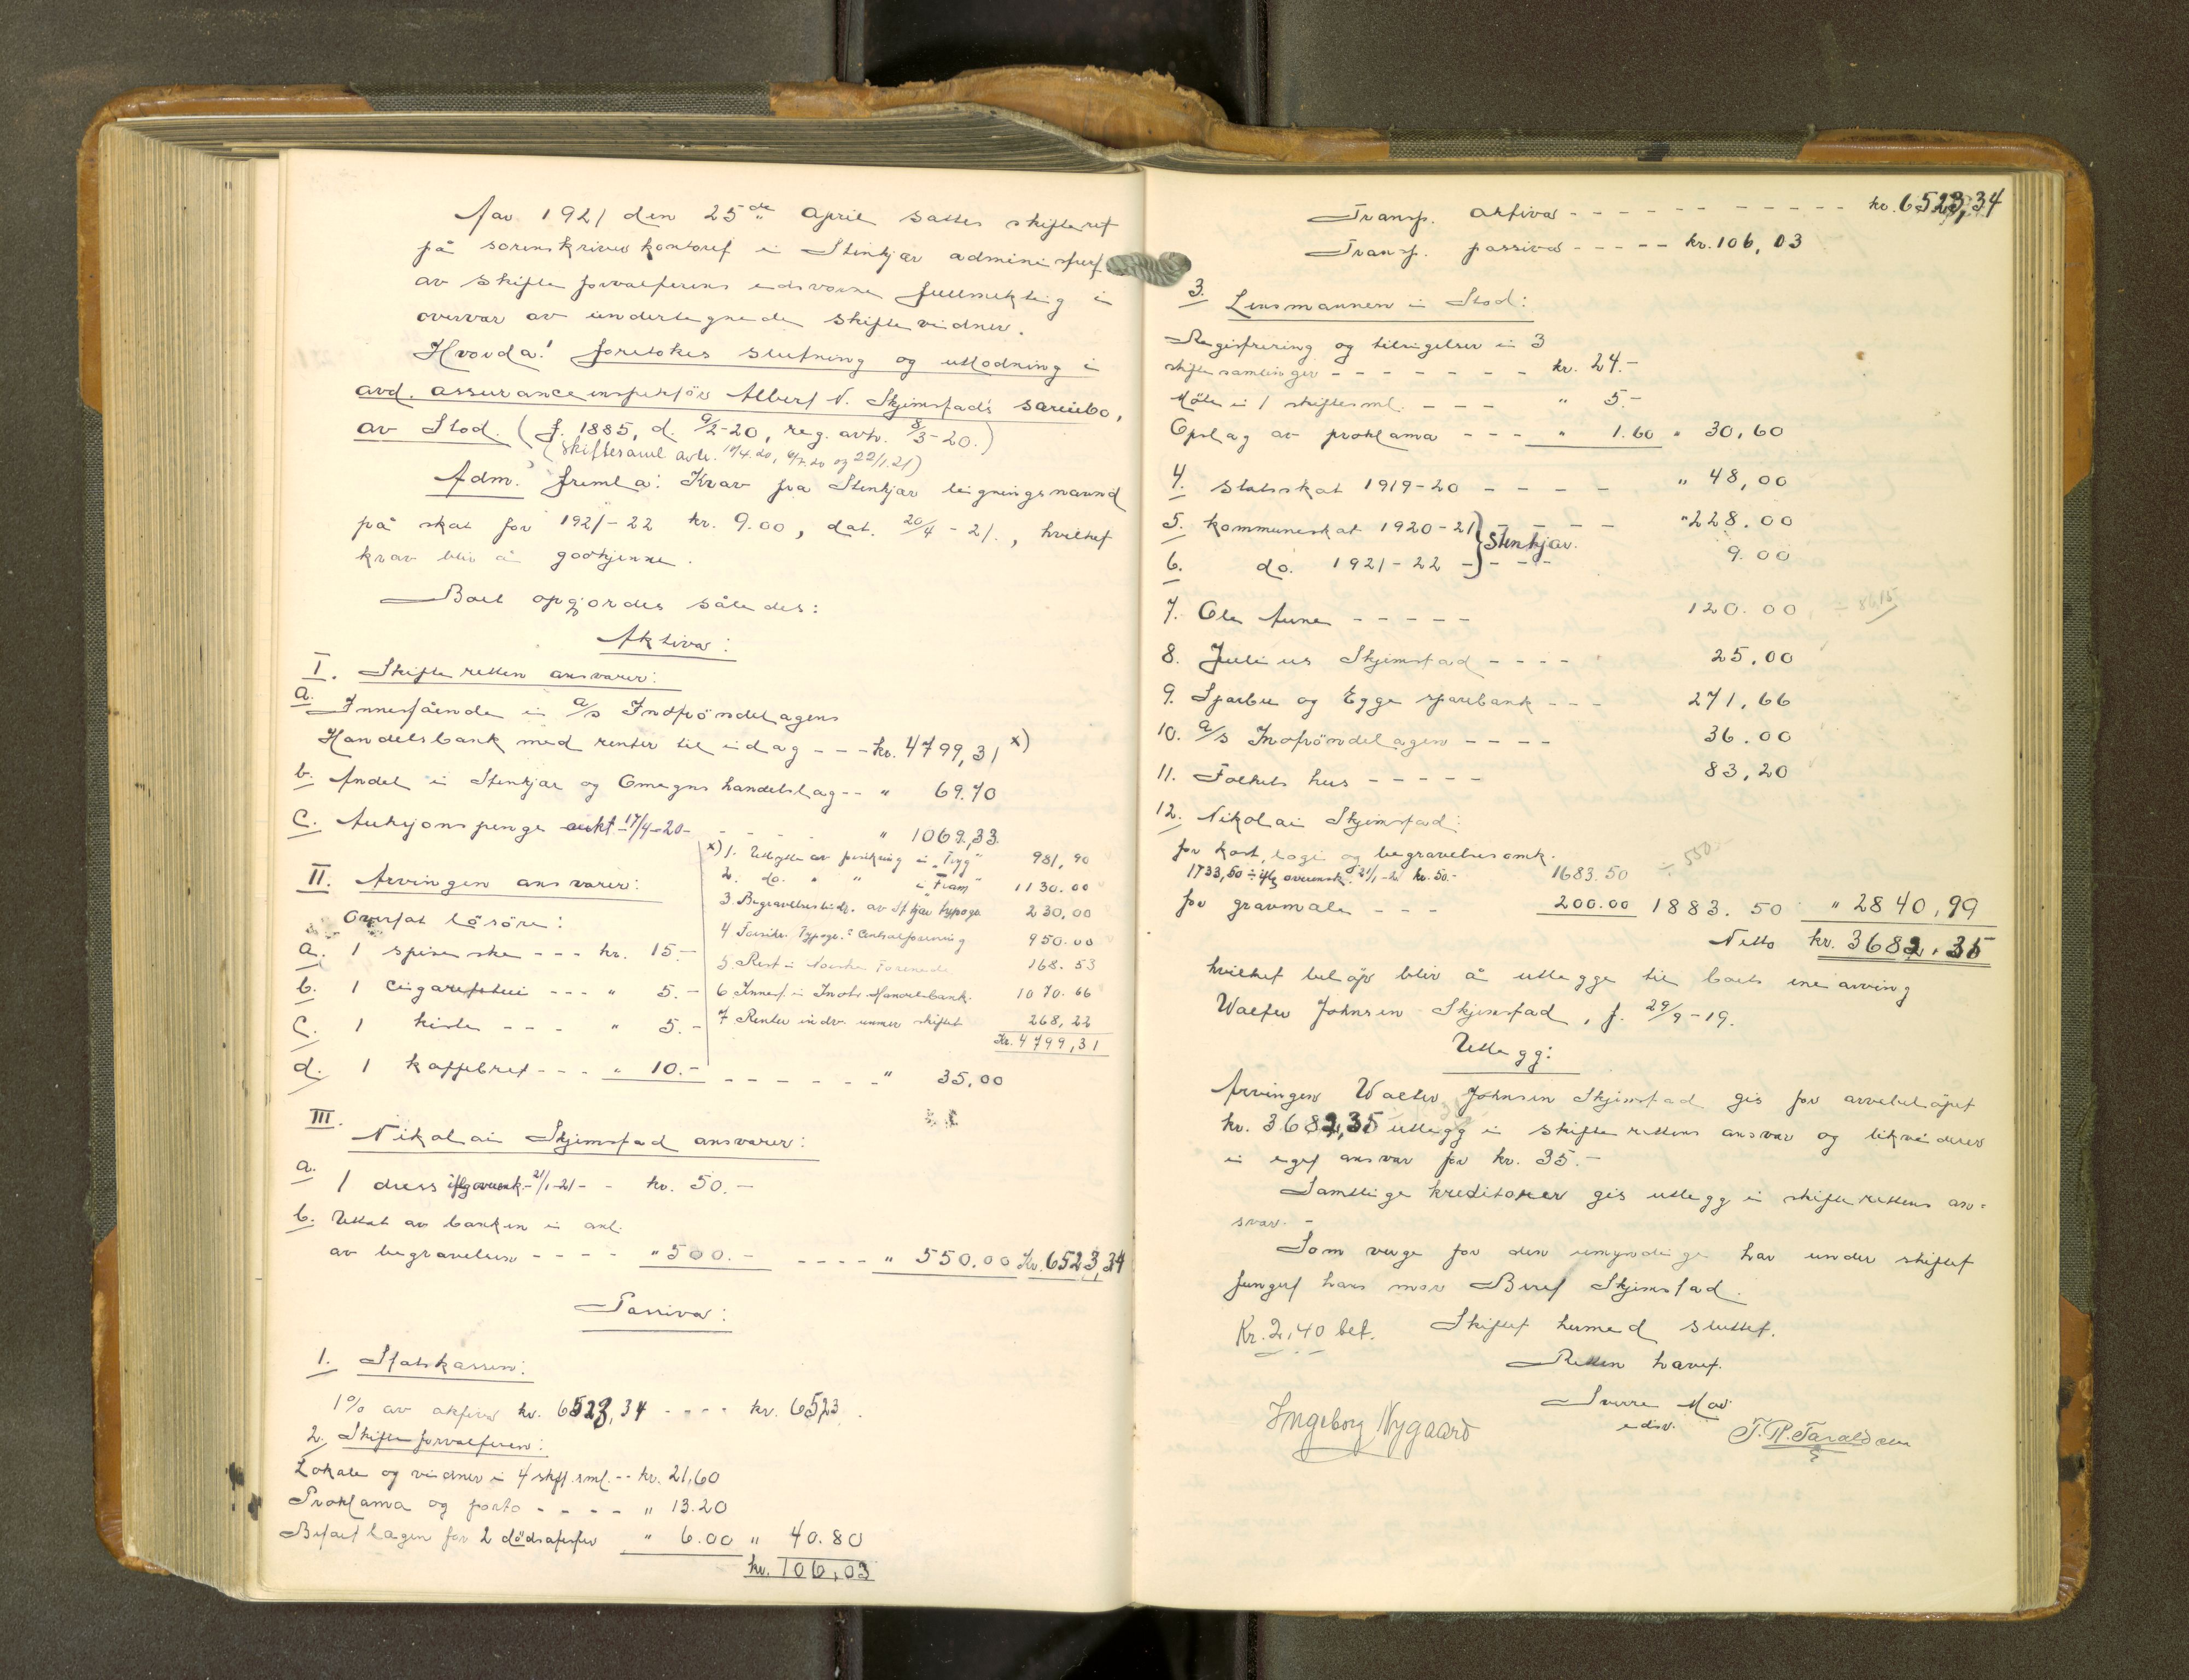 Aar 1921 den 25de april sattes skifteret
på sorenskriverkontoret i Stenkjær administrert
av skifteforvalterens edsvorne fuldmektig i
overvær av undertegnede skiftevidner.
Hvorda! foretokes slutning og utlodning i
avd. assuranceinspektør Albert N. Skjimstad's særeibo,
av Stod. (f. 1885, d. 9/2-20, reg. avh. 8/3-20.)
(skiftesaml avh. 19/4.20, 6/7.20 og 22/1.21)
Adm. freml a: Krav fra Stenkjær ligningsnævnd
på skat for 1921-22 kr. 9.00, dat. 20/4-21., hvilket
krav blir å godkjenne.
Boet opgjordes således:
Aktiva:
I. Skifteretten ansvarer:
a. Innestående i A/S Indtrøndelagens
Handelsbank med renter til idag --- kr. 4799,31 x)
b. Andel i Stenkjær og Omegns handelslag -- " 69.70
c. Auksjonspenge aukt. 17/4-20 - - - - " 1069,33
x) 1. Utbytte av forsikring i "Trygg" 981,90
2. do. " " i "Fram" 1130.00
3. Begravelsesbidr. av St.kjær typogr. 230,00
4 Forsikr. Typogr. Centralforening 950.00
5 Rest i Norske Forenede 168.53
6 Innest. i Indtr. Handelsbank. 1070.66
7 Renter indv. under skiftet 268,22
Kr. 4799,31
II. Arvingen ansvarer:
Overtat løsøre:
a. 1 spiseske --- kr. 15.-
b. 1 cigaretetui --- " 5.-
c. 1 kiste --- " 5.-
d. 1 kaffebret --- " 10.- ------ " 35,00
III. Nikolai Skjimstad ansvarer:
a. 1 dress iflg. overensk. 21/1-21 - - kr. 50.-
b. Uttat av banken i anl.
av begravelsen ---- " 500.- ---- " 550.00 Kr. 6523,34
Passiva:
1. Statskassen:
1% av aktiva kr. 6523,34 ---- kr. 65,23.
2. Skifteforvalteren:
Lokale og vidner i 4 skft.sml. -- kr. 21,60
Proklama og porto ---- " 13.20
Betalt lagen for 2 dødsatester " 6.00 " 40.80
kr. 106,03
Transp. aktiva ----------- kr. 6523,34
Transp. passiva ----- kr. 106,03
3. Lensmannen i Stod:
Registrering og tilsigelser i 3
skiftesamlinger ------- kr. 24.-
Møte i 1 skiftesml. --- " 5.-
Opslag av proklama --- " 1.60 " 30,60
4. Statsskat 1919-20 ---- " 48,00
5. Kommuneskat 1920-21 } Stenkjær. - - " 228.00
6. do. 1921-22 - } - - - 9.00
7. Ole Aune ----- 120.00 ÷ 86,15
8. Julius Skjimstad ---- 25,00
9. Sparbu og Egge sparebank --- 271,66
10. A/S Indtrøndelagen ---- 36.00
11. Folkets hus ----- 83,20
12. Nikolai Skjimstad:
for kost, logi og begravelsesomk.
1733,50 ÷ iflg overensk. 21/1-21 kr. 50.- 1683.50 ÷ 550.-
for gravmæle --- 200.00 1883.50 " 2840,99
Netto kr. 3682.35
hvilket beløp blir å utlegge til boets ene arving
Walter Johnsen Skjimstad, f. 29/9-19.
Utlegg:
Arvingen Walter Johnsen Skjimstad gis for arvebeløpet
kr. 3682,35 utlegg i skifterettens ansvar og likviderer
i eget ansvar for kr. 35.-
Samtlige kreditorer gis utlegg i skifterettens an-
svar.-
Som verge for den umyndige har under skiftet
fungert hans mor Beret Skjimstad.
Kr. 2,40 bet. Skiftet hermed sluttet.
Retten hævet.
Sverre Mo
edsv.
Ingeborg Nygaard
T. R. Taraldsen